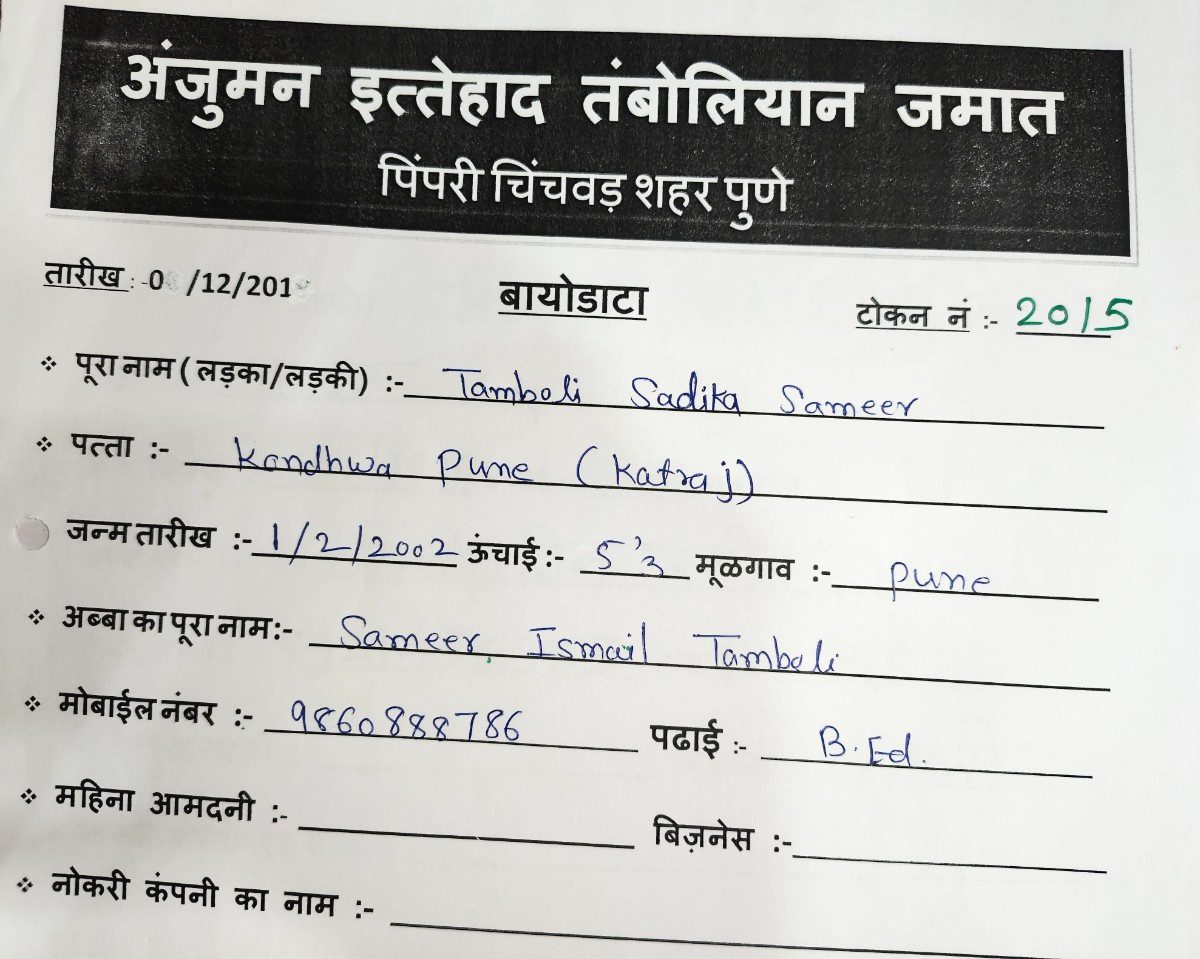 अंजुमन इत्तेहाद तंबोलियान जमात
पिंपरी चिंचवड़ शहर पुणे
तारीख :-0 /12/201
बायोडाटा
टोकन नं :- 2015
❖ पूरा नाम ( लड़का/लड़की) :- Tamboli Sadika Sameer
❖ पत्ता :- Kondhwa Pune (Katraj)
जन्म तारीख :- 1/2/2002 ऊंचाई:- 5'3 मूळगाव :- Pune
❖ अब्बा का पूरा नाम:- Sameer Ismail Tamboli
❖ मोबाईल नंबर :- 9860888786 पढाई :- B.Ed.
❖ महिना आमदनी :- बिज़नेस :-
❖ नोकरी कंपनी का नाम :-